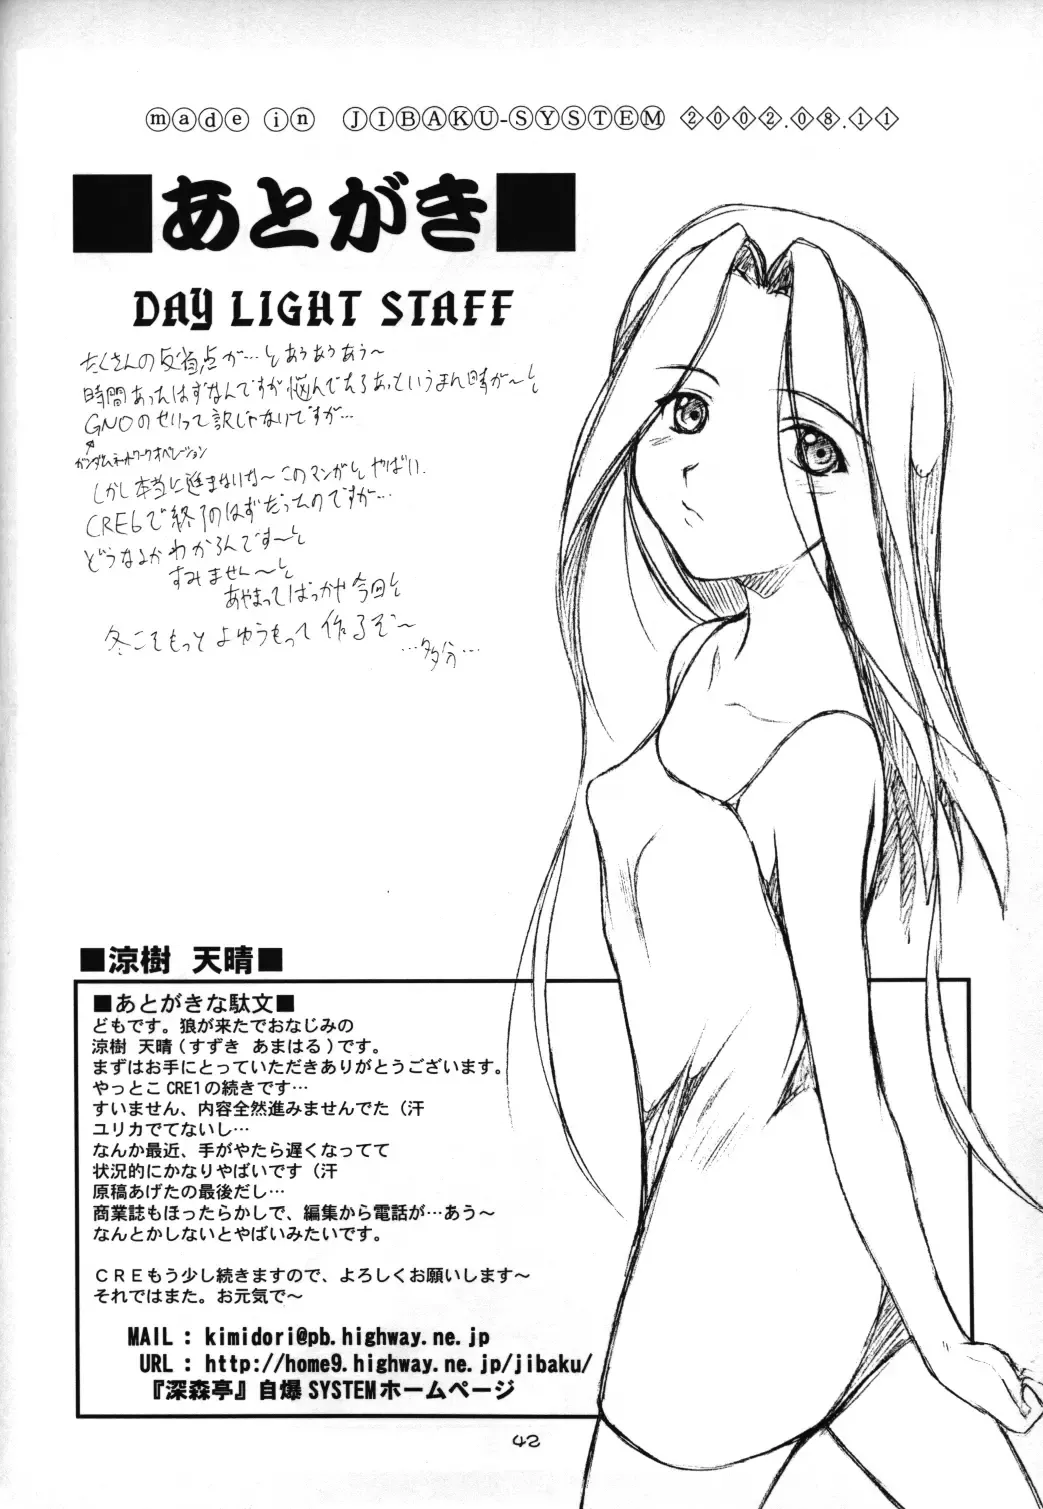 made in JIBAKU-SYSTEM 2002.08.11
■あとがき■
DAY LIGHT STAFF
たくさんの反省点が…とあうあうあう〜
時間あったはずなんですが悩んでるあっというまん時が〜と
GNOのせいって訳じゃないですが…
ガンダムネットワークオペレーション
しかし本当に進まないな〜このマンガとやばい.
CRE6で終了のはずだったのですが…
どうなるかわからんです〜と
すみません〜と
あやまってばっかや今回と
冬こそもっとよゆうもって作るぞ〜
…多分…
■涼樹 天晴■
■あとがきな駄文■
どもです。狼が来たでおなじみの
涼樹 天晴(すずき あまはる)です。
まずはお手にとっていただきありがとうございます。
やっとこCRE1の続きです…
すいません、内容全然進みませんでた(汗
ユリカでてないし…
なんか最近、手がやたら遅くなってて
状況的にかなりやばいです(汗
原稿あげたの最後だし…
商業誌もほったらかしで、編集から電話が…あう〜
なんとかしないとやばいみたいです。
CREもう少し続きますので、よろしくお願いします〜
それではまた。お元気で〜
MAIL : kimidori@pb.highway.ne.jp
URL : http://home9.highway.ne.jp/jibaku/
『深森亭』自爆SYSTEMホームページ
42